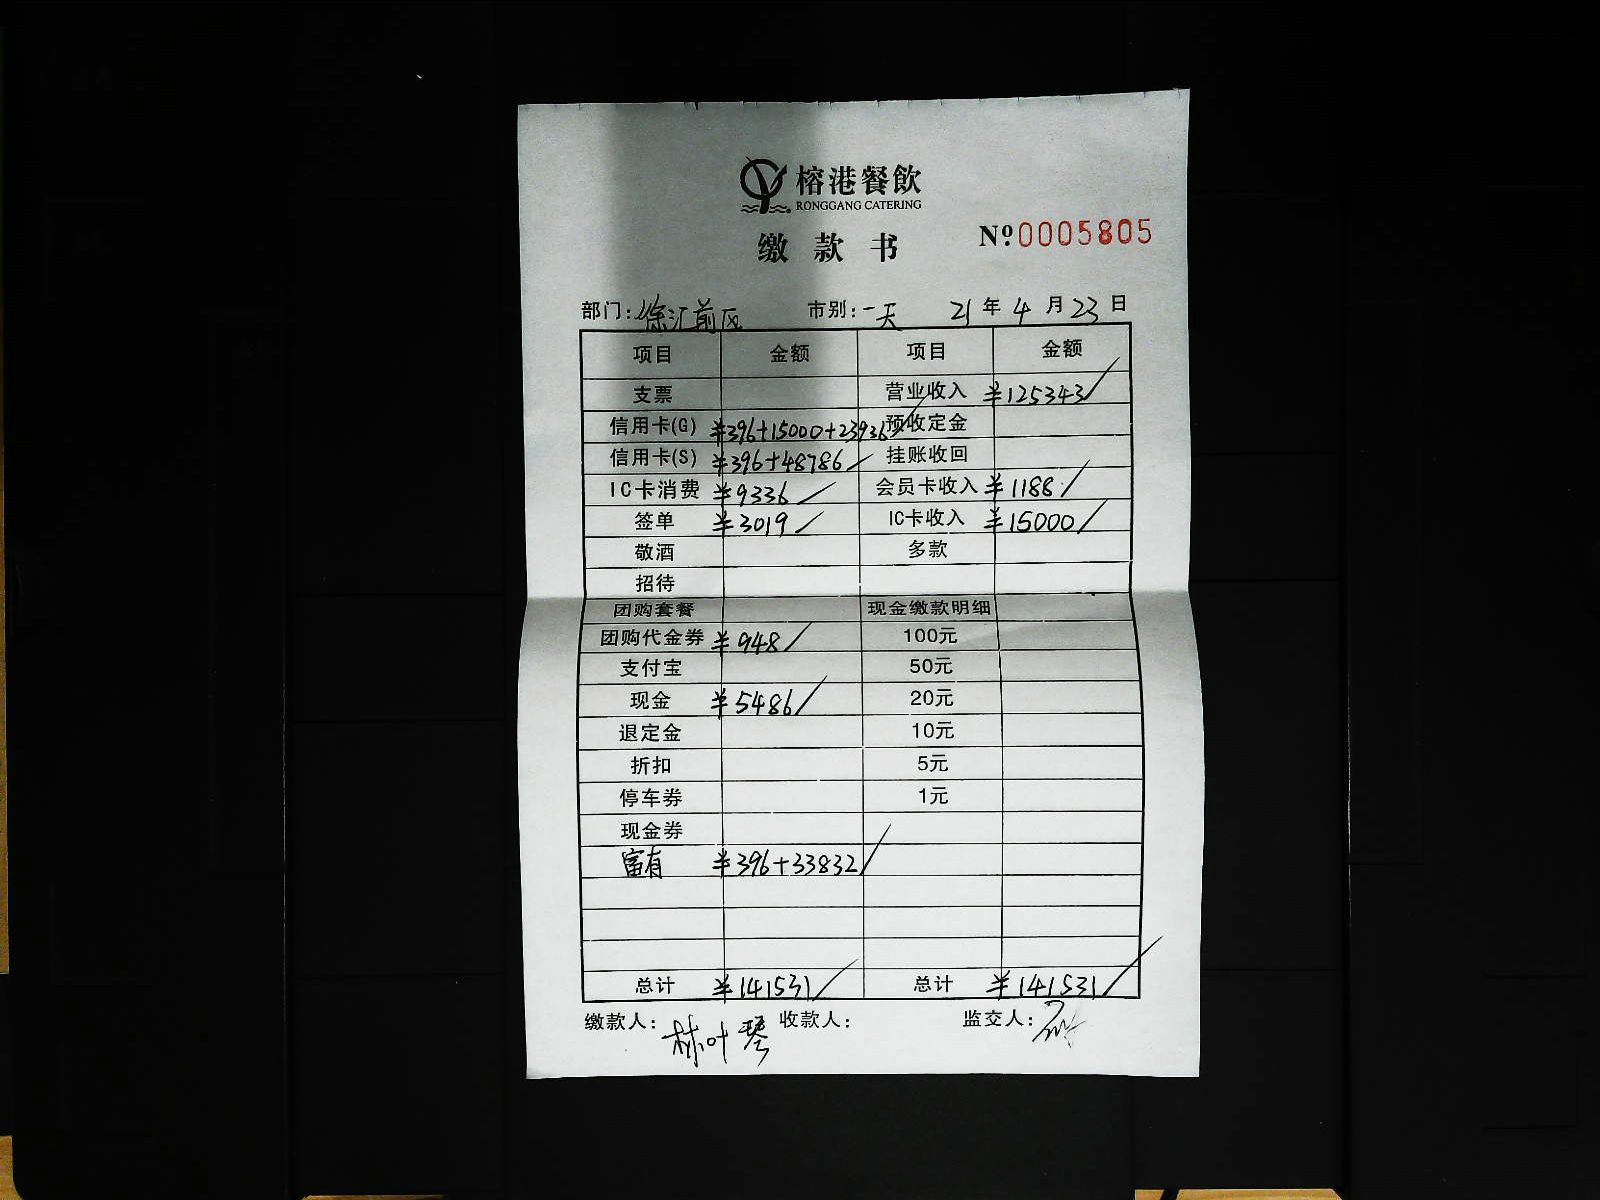 榕港餐飲
RONGGANG CATERING
缴款书 Nº0005805
部门:徐汇前区 市别:一天 21年4月23日
项目 金额 项目 金额
支票 营业收入 ¥125343
信用卡(G) ¥396+15000+23936 预收定金
信用卡(S) ¥396+48786 挂账收回
IC卡消费 ¥9336 会员卡收入 ¥1188
签单 ¥3019 IC卡收入 ¥15000
敬酒 多款
招待
团购套餐 现金缴款明细
团购代金券 ¥948 100元
支付宝 50元
现金 ¥5486 20元
退定金 10元
折扣 5元
停车券 1元
现金券
富有 ¥396+33832
总计 ¥141531 总计 ¥141531
缴款人:林叶琴 收款人: 监交人: